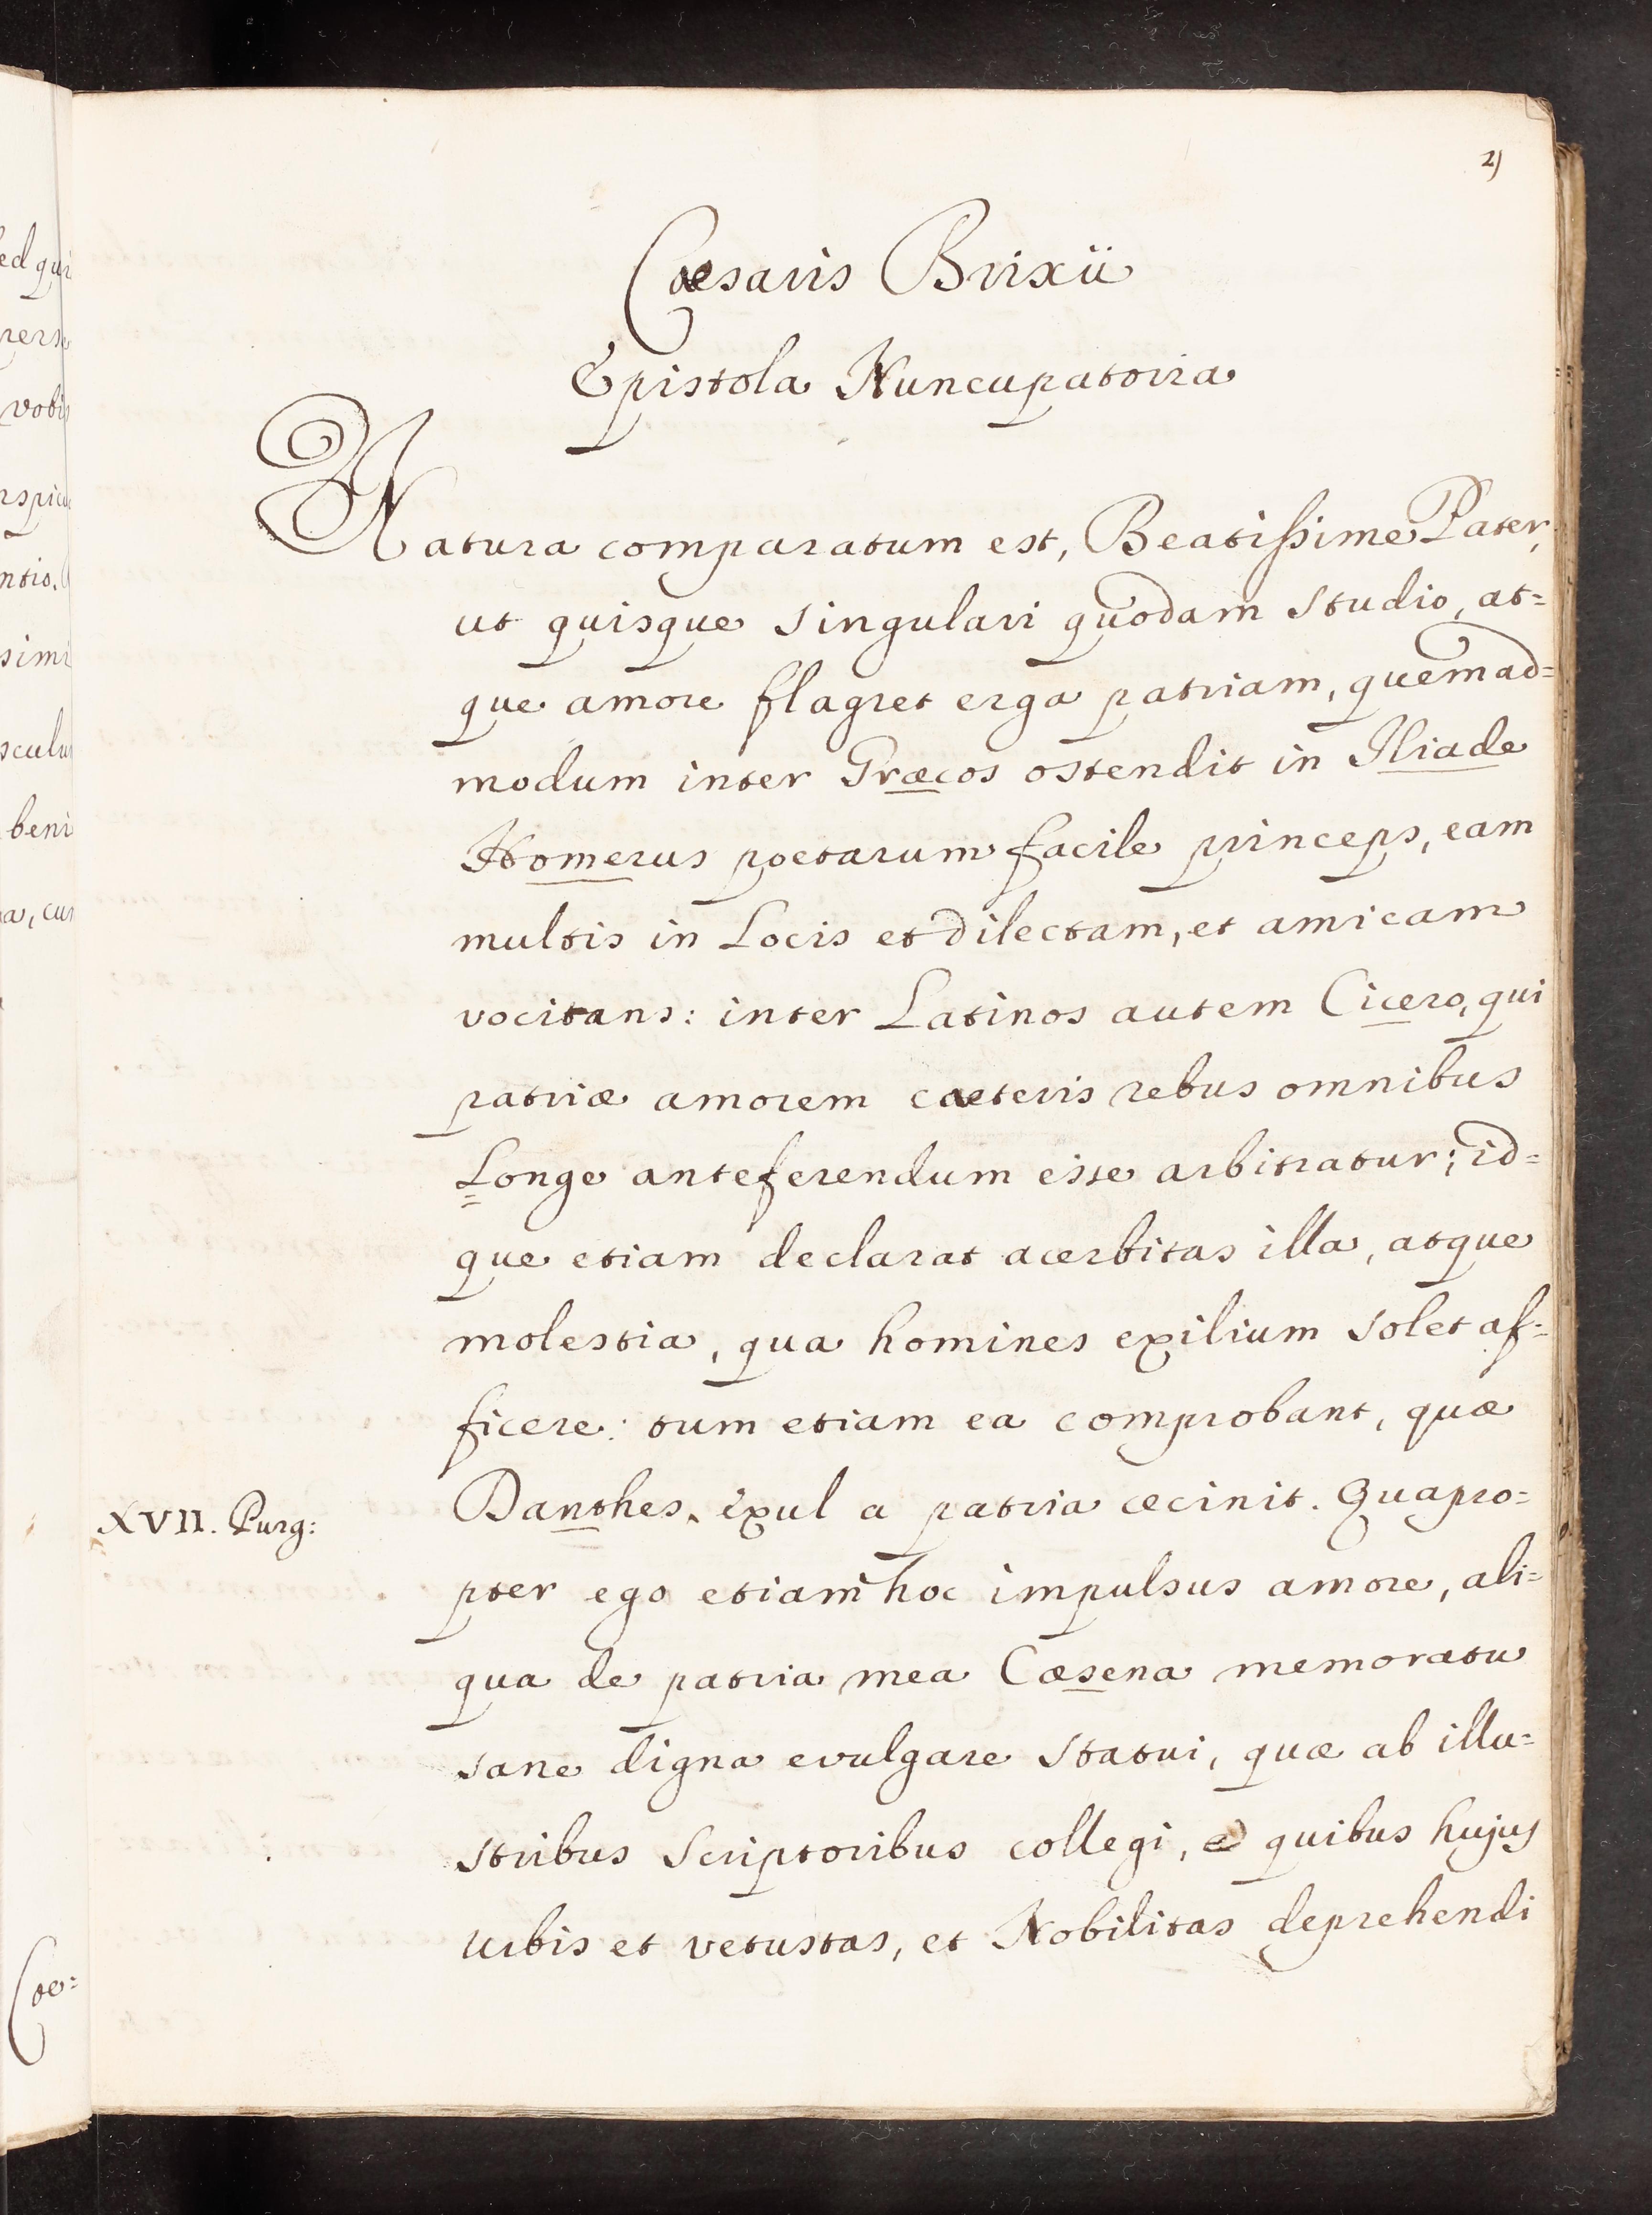 2)
Cæsaris Brixii
Epistola Nuncupatoria
Natura comparatum est, Beatissime Pater,
ut quisque singulari quodam studio, at=
que amore flagret erga patriam, quemad=
modum inter Græcos ostendit in Iliade
Homerus poetarum facile princeps, eam
multis in Locis et dilectam, et amicam
vocitans: inter Latinos autem Cicero, qui
patriæ amorem cæteris rebus omnibus
Longe anteferendum esse arbitratur; id=
que etiam declarat acerbitas illa, atque
molestia, qua homines exilium solet af=
ficere: tum etiam ea comprobant, quæ
XVII. Purg:
Danthes, exul a patria cecinit. Quapro=
pter ego etiam hoc impulsus amore, ali=
qua de patria mea Cæsena memoratu
sane digna evulgare statui, quæ ab illu=
stribus Scriptoribus collegi, e quibus hujus
urbis et vetustas, et Nobilitas deprehendi
ed qui
vobis
sculu
beni
a, cur
Cæ=